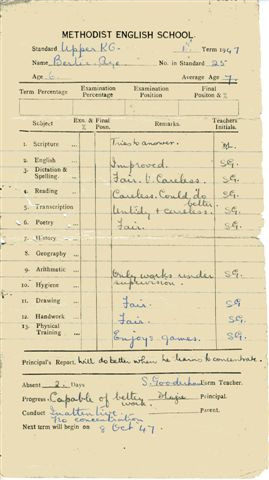 METHODIST ENGLISH SCHOOL.
Standard Upper KG. 1st Term 1947
Name No. in Standard 25
Age 6. Average Age 7.
Term Percentage Examination Percentage Examination Position Final Positon & %
Subject Exn. % & Final Posn. Remarks. Teachers Initials.
1. Scripture ... Tries to answer.
2. English ... Improved. SG.
3. Dictation & Spelling. ... Fair. & Careless. SG.
4. Reading ... Careless. Could do better. SG.
5. Transcription ... Untidy & careless. SG.
6. Poetry ... Fair. SG.
7. History ...
8. Geography ...
9. Arithmetic ... Only works under supervision. SG.
10. Hygiene ...
11. Drawing ... Fair. SG
12. Handwork ... Fair. SG
13. Physical Training ... Enjoys games. SG.
Principal's Report. Will do better when he learns to concentrate.
Absent 2. Days Form Teacher.
Progress. Capable of better work. Principal.
Conduct Inattentive. No concentration Parent.
Next term will begin on 8 Oct 47.